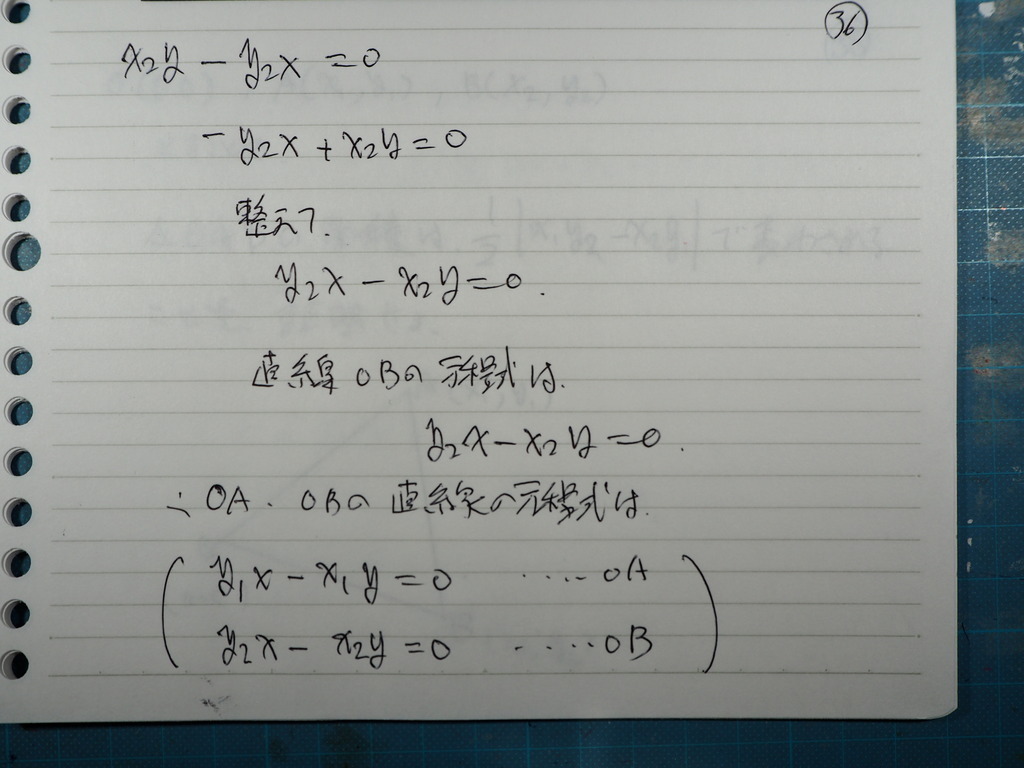 ㊱
x₂y − y₂x = 0
−y₂x + x₂y = 0
整えて.
y₂x − x₂y = 0.
直線 OBの 方程式は.
y₂x − x₂y = 0.
∴ OA. OBの 直線の方程式は.
y₁x − x₁y = 0 ・・・・ OA
y₂x − x₂y = 0 ・・・・・ OB